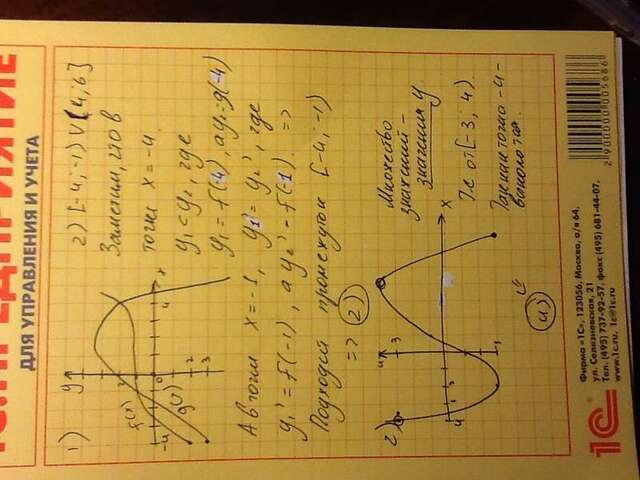 1С:ПРЕДПРИЯТИЕ
ДЛЯ УПРАВЛЕНИЯ И УЧЕТА
1)
y
f(x)
g(x)
x
-4
0
4
2
3
2) [-4; -1) ∪ (4; 6]
Заметим, что в
точке x = -4
y₁ < y₂, где
y₁ = f(-4), а y₂ = g(-4)
А в точке x = -1, y₁' = y₂', где
y₁' = f(-1), а y₂' = f(-1). =>
Подходит промежуток [-4; -1)
=> 2)
2)
4
3
1
x
Множество
значений -
значения y
Т.е от [-3; 4).
4)
1С
Фирма "1С", 123056, Москва, а/я 64,
ул. Селезневская, 21
Тел. (495) 737-92-57, факс (495) 681-44-07,
www.1c.ru, 1c@1c.ru
2 900000 005686